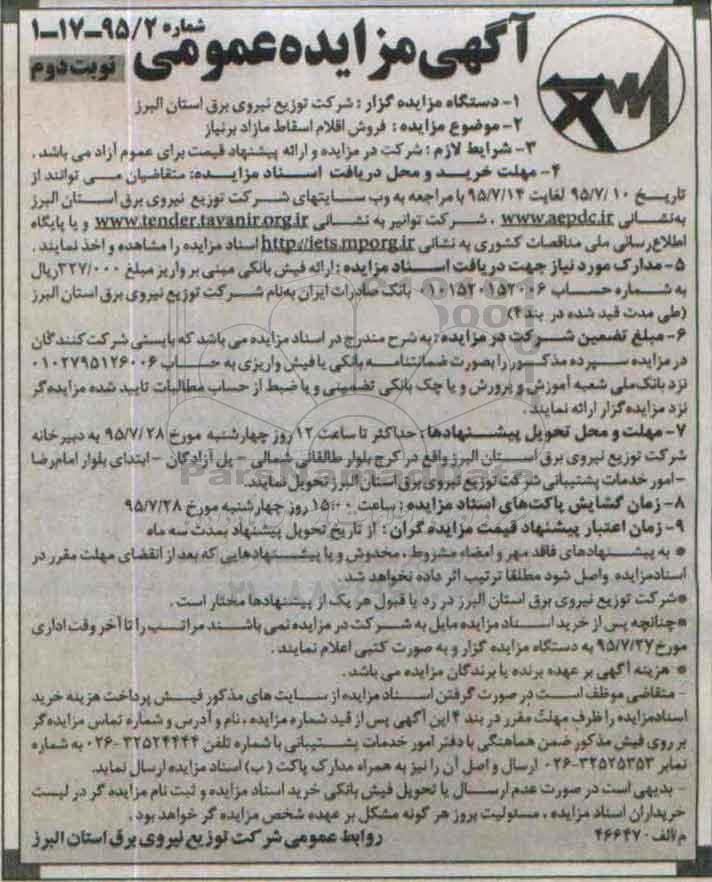 آگهی مزایده عمومی شماره ۹۵/۲-۱۷-۱
نوبت دوم
۱- دستگاه مزایده گزار : شرکت توزیع نیروی برق استان البرز
۲- موضوع مزایده : فروش اقلام اسقاط مازاد برنیاز
۳- شرایط لازم : شرکت در مزایده و ارائه پیشنهاد قیمت برای عموم آزاد می باشد .
۴- مهلت خرید و محل دریافت اسناد مزایده: متقاضیان می توانند از
تاریخ ۹۵/۷/۱۰ لغایت ۹۵/۷/۱۴ با مراجعه به وب سایتهای شرکت توزیع نیروی برق استان البرز
به نشانی www.aepdc.ir ، شرکت توانیر به نشانی www.tender.tavanir.org.ir و یا پایگاه
اطلاع رسانی ملی مناقصات کشوری به نشانی http://iets.mporg.ir اسناد مزایده را مشاهده و اخذ نمایند .
۵- مدارک مورد نیاز جهت دریافت اسناد مزایده : ارائه فیش بانکی مبنی بر واریز مبلغ ۳۲۷/۰۰۰ریال
به شماره حساب ۰۱۰۱۵۲۰۱۵۲۰۰۶ بانک صادرات ایران به نام شرکت توزیع نیروی برق استان البرز
(طی مدت قید شده در بند ۴)
۶- مبلغ تضمین شرکت در مزایده : به شرح مندرج در اسناد مزایده می باشد که بایستی شرکت کنندگان
در مزایده سپرده مذکور را بصورت ضمانتنامه بانکی یا فیش واریزی به حساب ۰۱۰۲۷۹۵۱۲۶۰۰۶
نزد بانک ملی شعبه آموزش و پرورش و یا چک بانکی تضمینی و یا ضبط از حساب مطالبات تایید شده مزایده گر
نزد مزایده گزار ارائه نمایند .
۷- مهلت و محل تحویل پیشنهادها : حداکثر تا ساعت ۱۲ روز چهارشنبه مورخ ۹۵/۷/۲۸ به دبیرخانه
شرکت توزیع نیروی برق استان البرز واقع در کرج بلوار طالقانی شمالی - پل آزادگان - ابتدای بلوار امام رضا
- امور خدمات پشتیبانی شرکت توزیع نیروی برق استان البرز تحویل نمایند.
۸- زمان گشایش پاکت های اسناد مزایده : ساعت ۱۵:۰۰ روز چهارشنبه مورخ ۹۵/۷/۲۸
۹- زمان اعتبار پیشنهاد قیمت مزایده گران : از تاریخ تحویل پیشنهاد بمدت سه ماه
* به پیشنهادهای فاقد مهر و امضاء مشروط ، مخدوش و یا پیشنهادهایی که بعد از انقضای مهلت مقرر در
اسناد مزایده واصل شود مطلقا ترتیب اثر داده نخواهد شد .
* شرکت توزیع نیروی برق استان البرز در رد یا قبول هر یک از پیشنهادها مختار است .
* چنانچه پس از خرید اسناد مزایده مایل به شرکت در مزایده نمی باشند مراتب را تا آخر وقت اداری
مورخ ۹۵/۷/۲۷ به دستگاه مزایده گزار و به صورت کتبی اعلام نمایند .
* هزینه آگهی بر عهده برنده یا برندگان مزایده می باشد .
- متقاضی موظف است در صورت گرفتن اسناد مزایده از سایت های مذکور فیش پرداخت هزینه خرید
اسناد مزایده را ظرف مهلت مقرر در بند ۴ این آگهی پس از قید شماره مزایده ، نام و آدرس و شماره تماس مزایده گر
بر روی فیش مذکور ضمن هماهنگی با دفتر امور خدمات پشتیبانی با شماره تلفن ۳۲۵۲۴۴۴۴-۰۲۶ به شماره
نمابر ۳۲۵۲۵۳۵۳-۰۲۶ ارسال و اصل آن را نیز به همراه مدارک پاکت ( ب) اسناد مزایده ارسال نماید.
- بدیهی است در صورت عدم ارسال یا تحویل فیش بانکی خرید اسناد مزایده و ثبت نام مزایده گر در لیست
خریداران اسناد مزایده ، مسئولیت بروز هر گونه مشکل بر عهده شخص مزایده گر خواهد بود .
روابط عمومی شرکت توزیع نیروی برق استان البرز
م/الف ۴۶۶۴۷۰